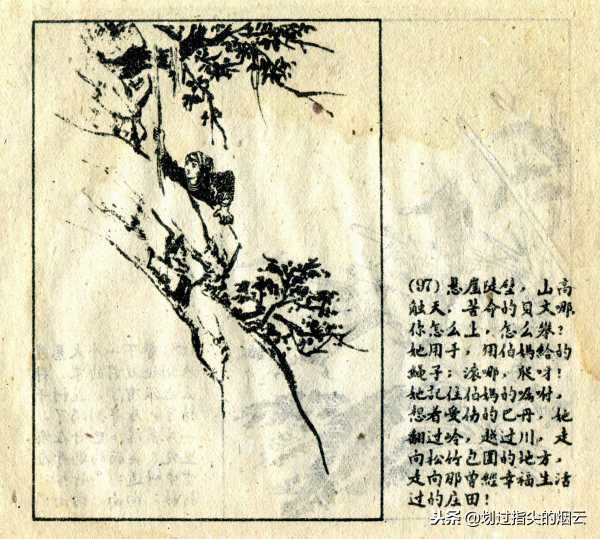 (97) 悬崖陡壁，山高
触天，苦命的贝文娜
你怎么上，怎么攀？
她用手，用伯媽給的
繩子；滚哪，爬呀！
她記住伯媽的嘱咐，
想着受伤的巴丹，她
翻过岭，越过川，走
向松竹包围的地方，
走向那曾經幸福生活
过的庄田！
头条 @划过指尖的烟云